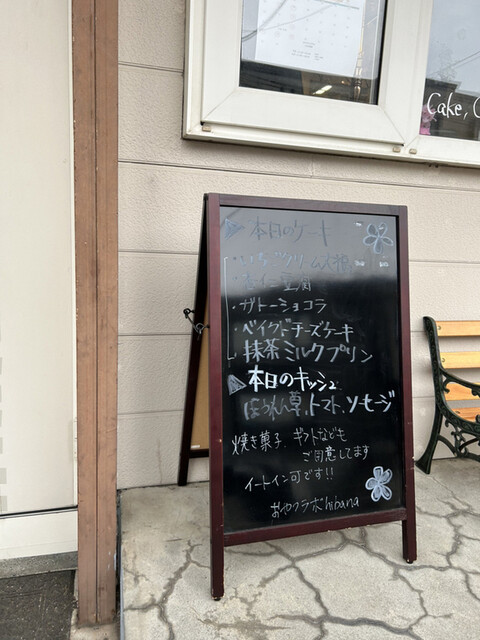 Cake, C
本日のケーキ
・いちごクリーム大福
・杏仁豆腐
・ガトーショコラ
・ベイクドチーズケーキ
・抹茶ミルクプリン
本日のキッシュ
ほうれん草、トマト、ソーセージ
焼き菓子、ギフトなども
ご用意してます
イートイン可です!!
おやつラボhibana